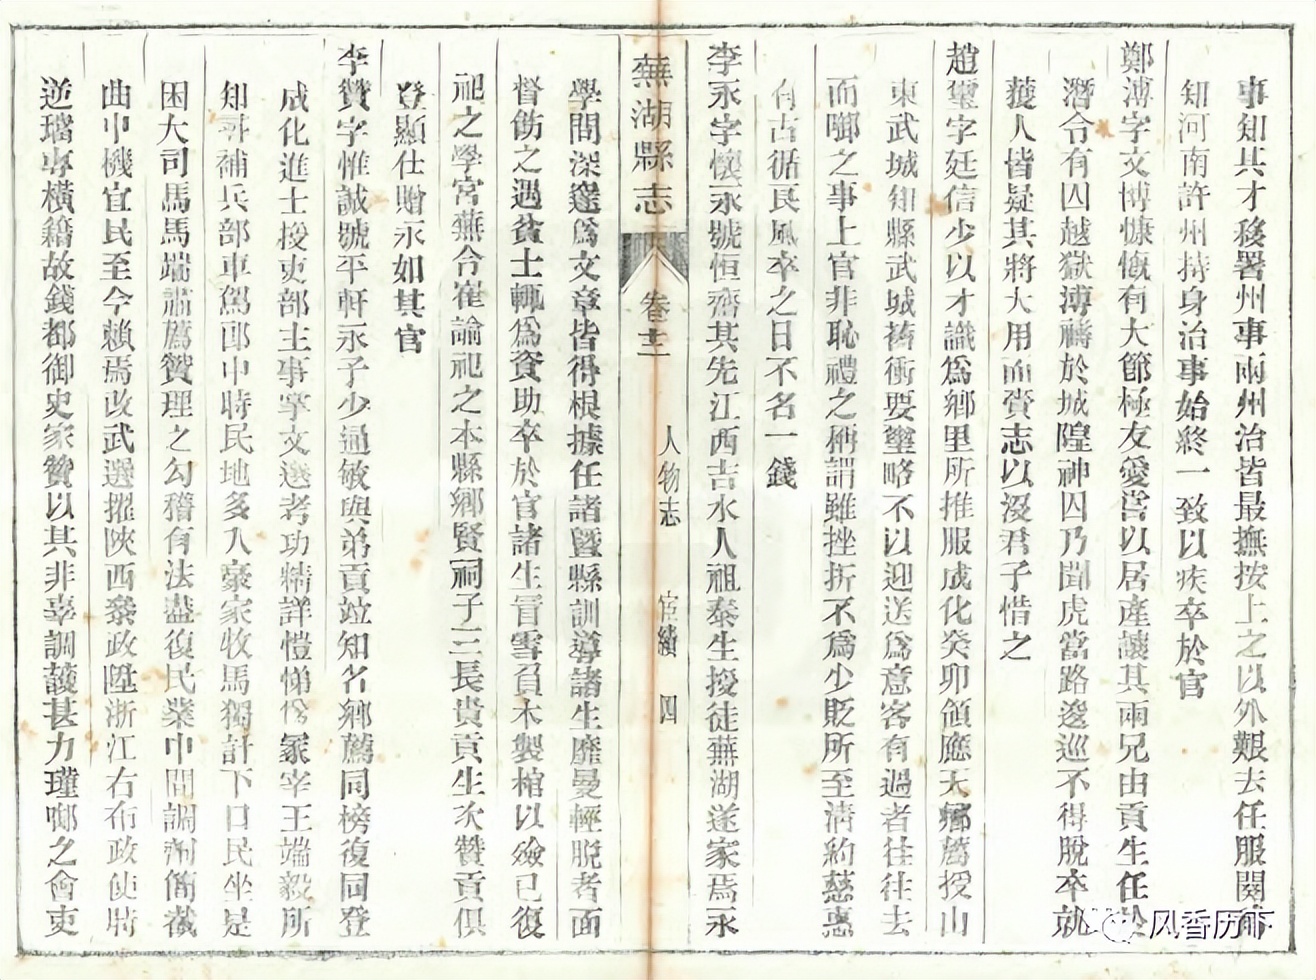 事知其才移署州事兩州治皆最撫按上之以外艱去任服闋補
知河南許州持身治事始終一致以疾卒於官
鄭溥字文博慷慨有大節極友愛嘗以居產讓其兩兄由貢生任於
潛令有囚越獄溥禱於城隍神囚乃聞虎當路逡巡不得脫卒就
獲人皆疑其將大用而賫志以沒君子惜之
趙璽字廷信少以才識爲鄉里所推服成化癸卯領應天鄉薦授山
東武城知縣武城舊衝要璽略不以迎送爲意客有過者往往去
而啣之事上官非恥禮之稱謂雖挫折不爲少貶所至清約慈惠
有古循良風卒之日不名一錢
李永字懷永號恒齋其先江西吉水人祖泰生授徒蕪湖遂家焉永
蕪湖縣志
卷十二
人物志
宦績
四
學問深邃爲文章皆得根據任諸暨縣訓導諸生靡曼輕脫者面
督飭之遇貧士輒爲資助卒於官諸生冒雪負木製棺以殮已復
祀之學宮蕪令崔諭祀之本縣鄉賢祠子三長貴貢生次贊貢俱
登顯仕贈永如其官
李贊字惟誠號平軒永子少過敏與弟貢竝知名鄉薦同榜復同登
成化進士授吏部主事掌文選考功精詳愷悌爲冢宰王端毅所
知尋補兵部車駕郎中時民地多入豪家牧馬獨計下口民坐是
困大司馬馬端肅薦贊理之勾稽有法盡復民業中間調劑簡裁
曲中機宜民至今賴焉改武選擢陝西叅政陞浙江右布政使時
逆瑾專橫籍故錢都御史家贊以其非辜調護甚力瑾啣之會吏
风香历下